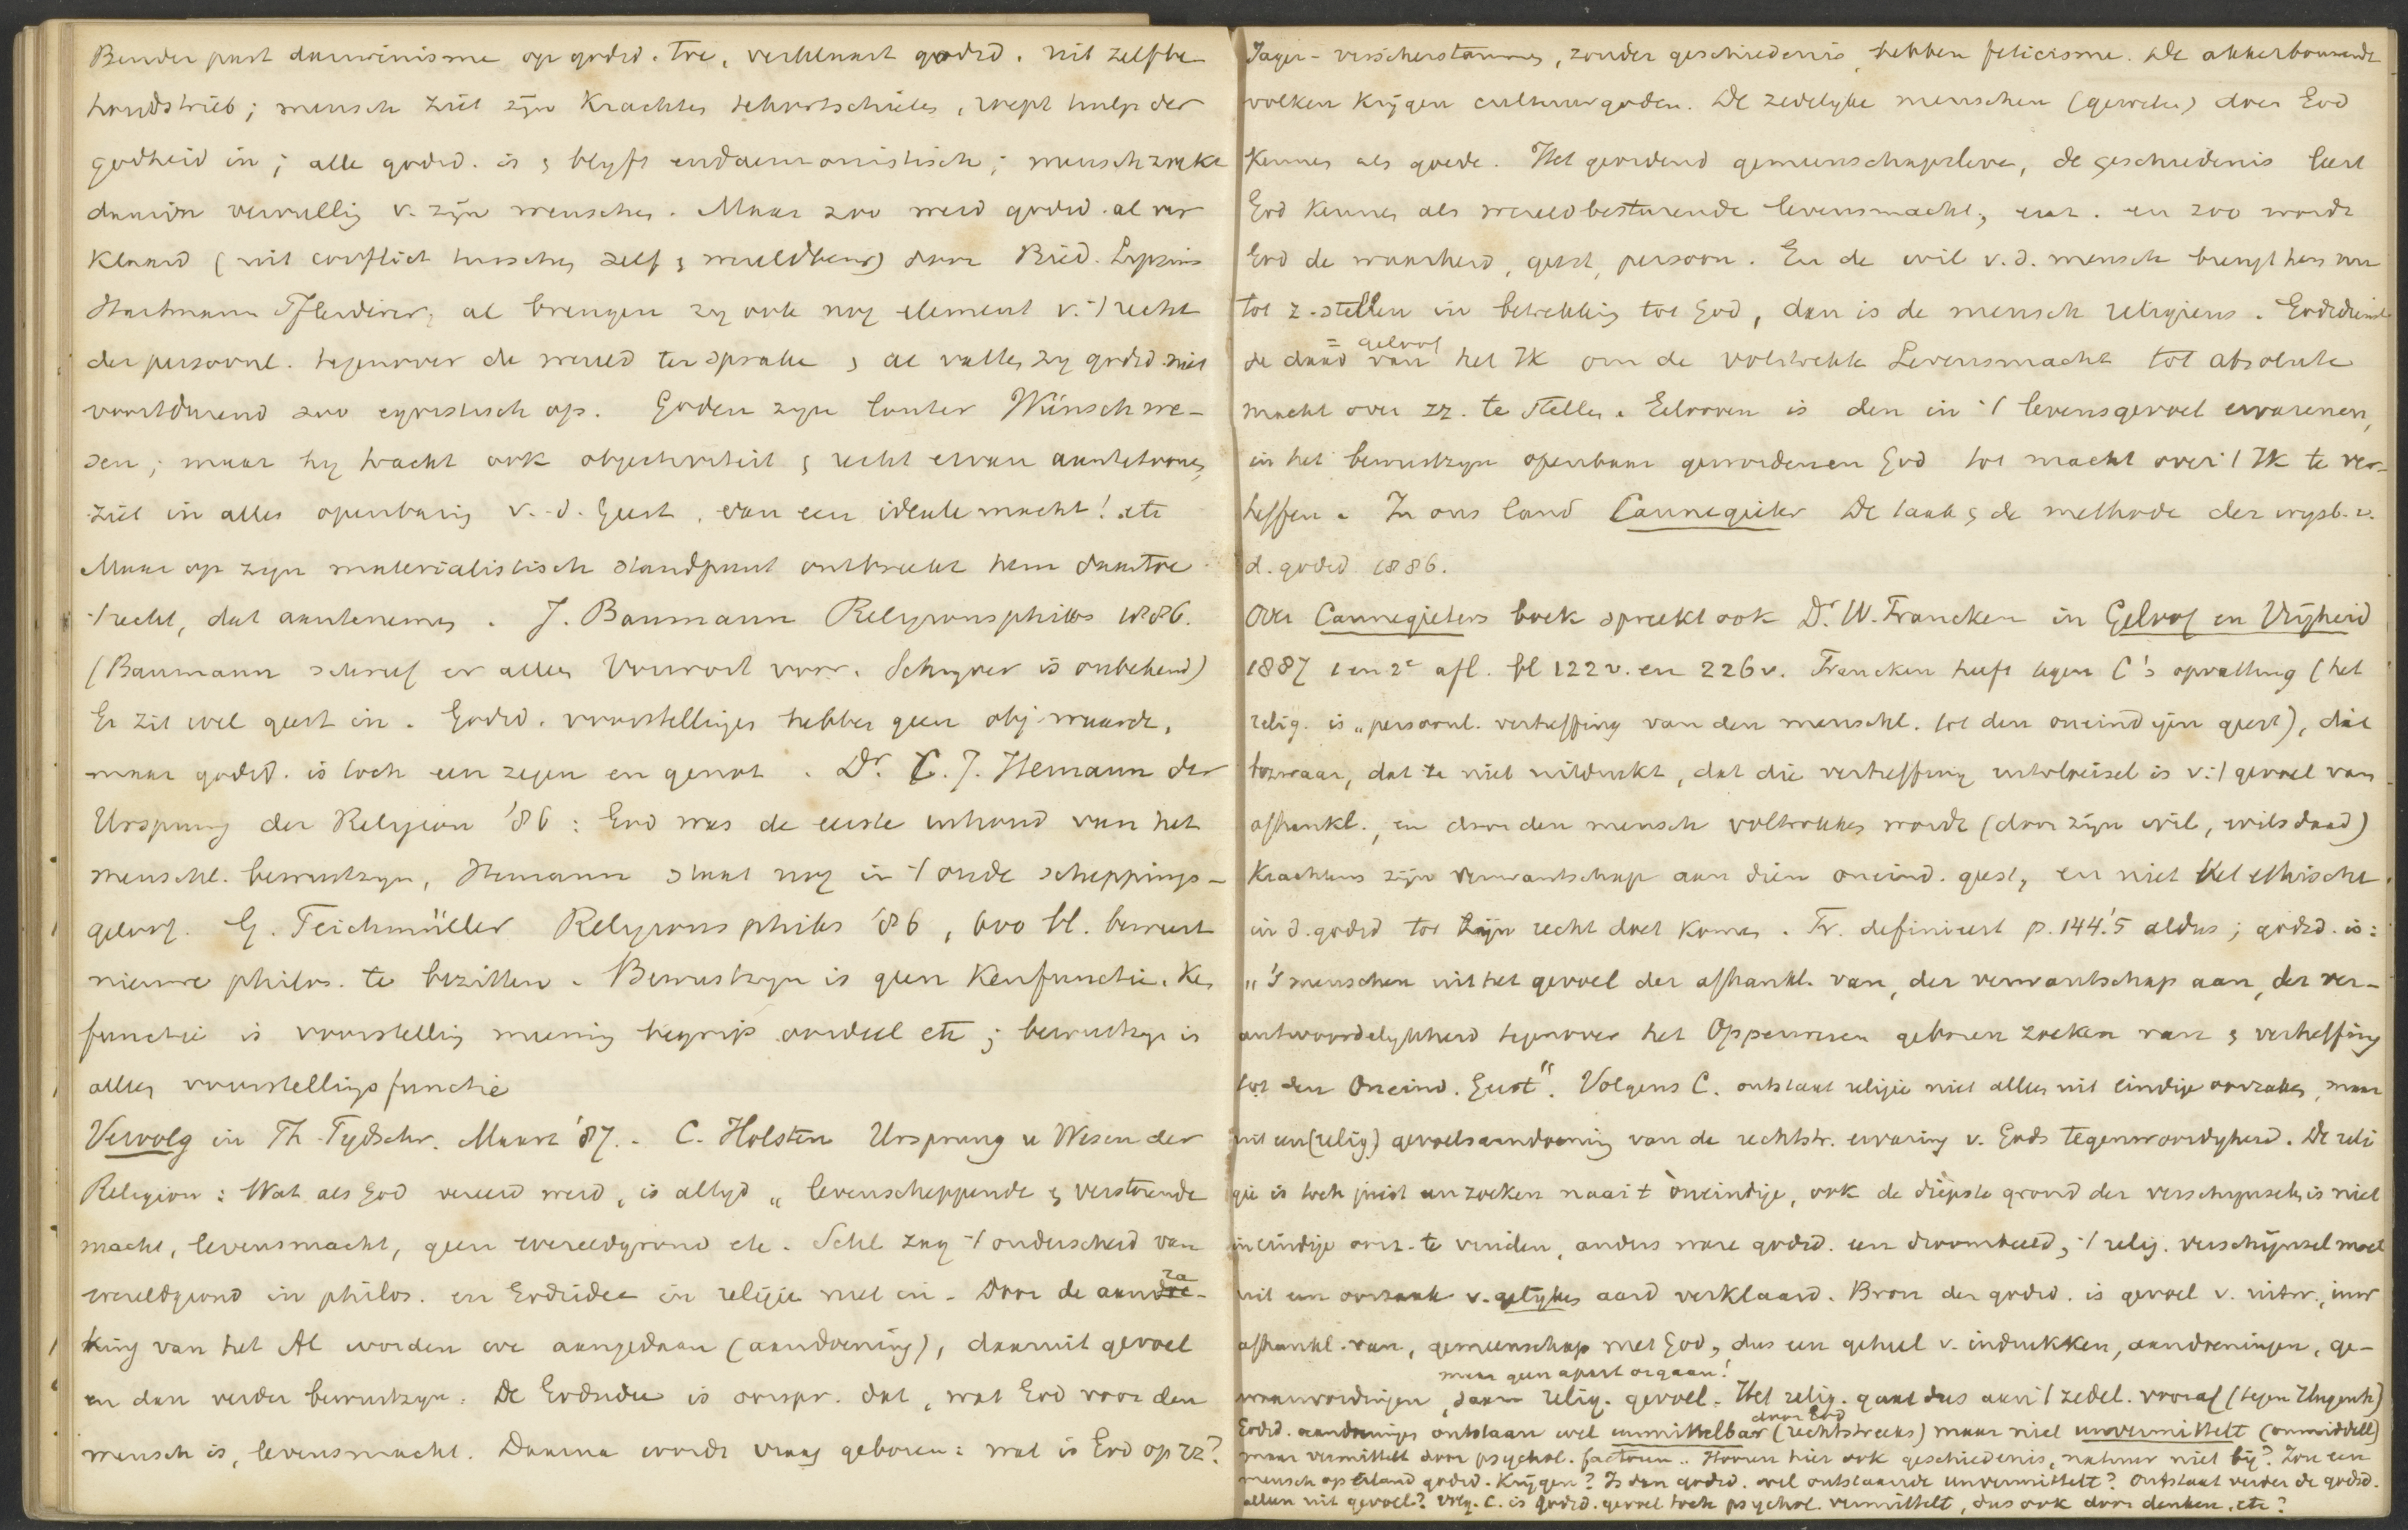 Bender past darwinisme op godsd. toe, verklaart godsd. uit zelfbe-
houdstrieb; mensch ziet zijn krachten tekortschieten, roept hulp der
godheid in; alle godsd. is & blyft eudaemonistisch; mensch zoekt
daarin vervulling v. zijn wenschen. Maar zoo werd godsd. al ver
klaard (uit conflict tusschen zelf & wereldbew) door Bied. Lipsius
Hartmann Pfleiderer, al brengen zy ook nog element v. 't recht
der persoonl. tegenover de wereld ter sprake & al vatten zy godsd. niet
voortdurend zoo egoistisch op. Goden zyn louter Wünschwe-
sen; maar hy tracht ook objectiviteit & recht ervan aantetoonen,
ziet in alles openbaring v. d. Geest, van een ideale macht! etc
Maar op zyn materialistisch standpunt ontbreekt hem daartoe
't recht, dat aantenemen. J. Baumann Religionsphilos 1886.
(Baumann schreef er alleen Vorwort voor. Schryver is onbekend)
Er zit wel geest in. Godsd. voorstellingen hebben geen obj. waarde,
maar godsd. is toch een zegen en genot. Dr. C. J. Hemann der
Ursprung der Religion '86: God was de eerste inhoud van het
menschl. bewustzyn, Hemann staat nog in 't oude scheppings-
geloof. G. Teichmüller Religionsphilos '86, 600 bl. beweert
nieuwe philos. te bezitten. Bewustzyn is geen Kenfunctie. Ken
functie is voorstelling meening begrip oordeel etc; bewustzyn is
alleen voorstellingsfunctie
Vervolg in Th. Tydschr. Maart '87. C. Holsten Ursprung u Wesen der
Religion: Wat als God vereerd werd, is altyd „levenscheppende & verstorende
macht, levensmacht, geen wereldgrond etc. Schl zag 't onderscheid van
wereldgrond in philos. en Godsidee in religie niet in. Door de aanra-
king van het Al worden we aangedaan (aandoening), daaruit gevoel
en dan verder bewustzyn. De Godsidee is oorspr. dat, wat God voor den
mensch is, levensmacht. Daarna wordt vraag geboren: wat is God op zz?
Jager- visscherstammen, zonder geschiedenis, hebben feticisme. De akkerbouwende
volken krijgen cultuurgoden. De zedelyke menschen (geweten) doen God
kennen als goede. Het geordend gemeenschapsleven, de geschiedenis leert
God kennen als wereldbesturende levensmacht, enz. en zoo wordt
God de waarheid, geest, persoon. En de wil v. d. mensch brengt hem nu
tot z. stellen in betrekking tot God, dan is de mensch religieus. Godsdienst
= geloof
de daad van het Ik om de volstrekte Levensmacht tot absolute
macht over zz. te stellen. Gelooven is den in 't levensgevoel ervarenen,
in het bewustzyn openbaar gewordenen God tot macht over 't Ik te ver-
heffen. In ons land Cannegieter De taak & de methode der wysb. v.
d. godsd. 1886.
Over Cannegieters boek spreekt ook Dr. W. Francken in Geloof en Vrijheid
1887 1 en 2e afl. bl 122 v. en 226 v. Francken heeft tegen C's opvatting (het
relig. is „persoonl. verheffing van den menschl. tot den oneindigen geest), dit
bezwaar, dat ze niet uitdrukt, dat die verheffing uitvloeisel is v. 't gevoel van
afhankl., en door den mensch voltrokken wordt (door zijn wil, wilsdaad)
Krachtens zijn verwantschap aan dien oneind. geest, en niet het ethische
in d. godsd tot zijn recht doet komen. Fr. definieert p. 144.'5 aldus; godsd. is:
„'s menschen uit het gevoel der afhankl. van, der verwantschap aan, der ver-
antwoordelykheid tegenover het Opperwezen geboren zoeken van & verheffing
tot den Oneind. Geest". Volgens C. ontstaat religie niet alleen uit eindige oorzaken, maar
uit een (relig) gevoelsaandoening van de rechtstr. ervaring v. Gods tegenwoordigheid. De reli
gie is toch juist een zoeken naar 't oneindige, ook de diepste grond der verschynselen is niet
in eindige oorz. te vinden, anders ware godsd. een droombeeld, 't relig. verschijnsel moet
uit een oorzaak v. gelyken aard verklaard. Bron der godsd. is gevoel v. uitw., inw
afhankl. van, gemeenschap met God, dus een geheel v. indrukken, aandoeningen, ge-
maar geen apart orgaan!
waarwordingen, daarin relig. gevoel. Het relig. gaat dus aan 't zedel. vooraf (tegen Hugenh)
door God
Godsd. aandoeningen ontstaan wel unmittelbar (rechtstreeks) maar niet unvermittelt (onmiddell)
maar vermittelt door psychol. factoren.. Hooren hier ook geschiedenis, natuur niet bij? Zou een
mensch op eiland godsd. krijgen? Is dan godsd. wel ontstaande unvermittelt? Ontstaat verder de godsd.
alleen uit gevoel? Volg. C. is godsd. gevoel toch psychol. vermittelt, dus ook door denken. etc?